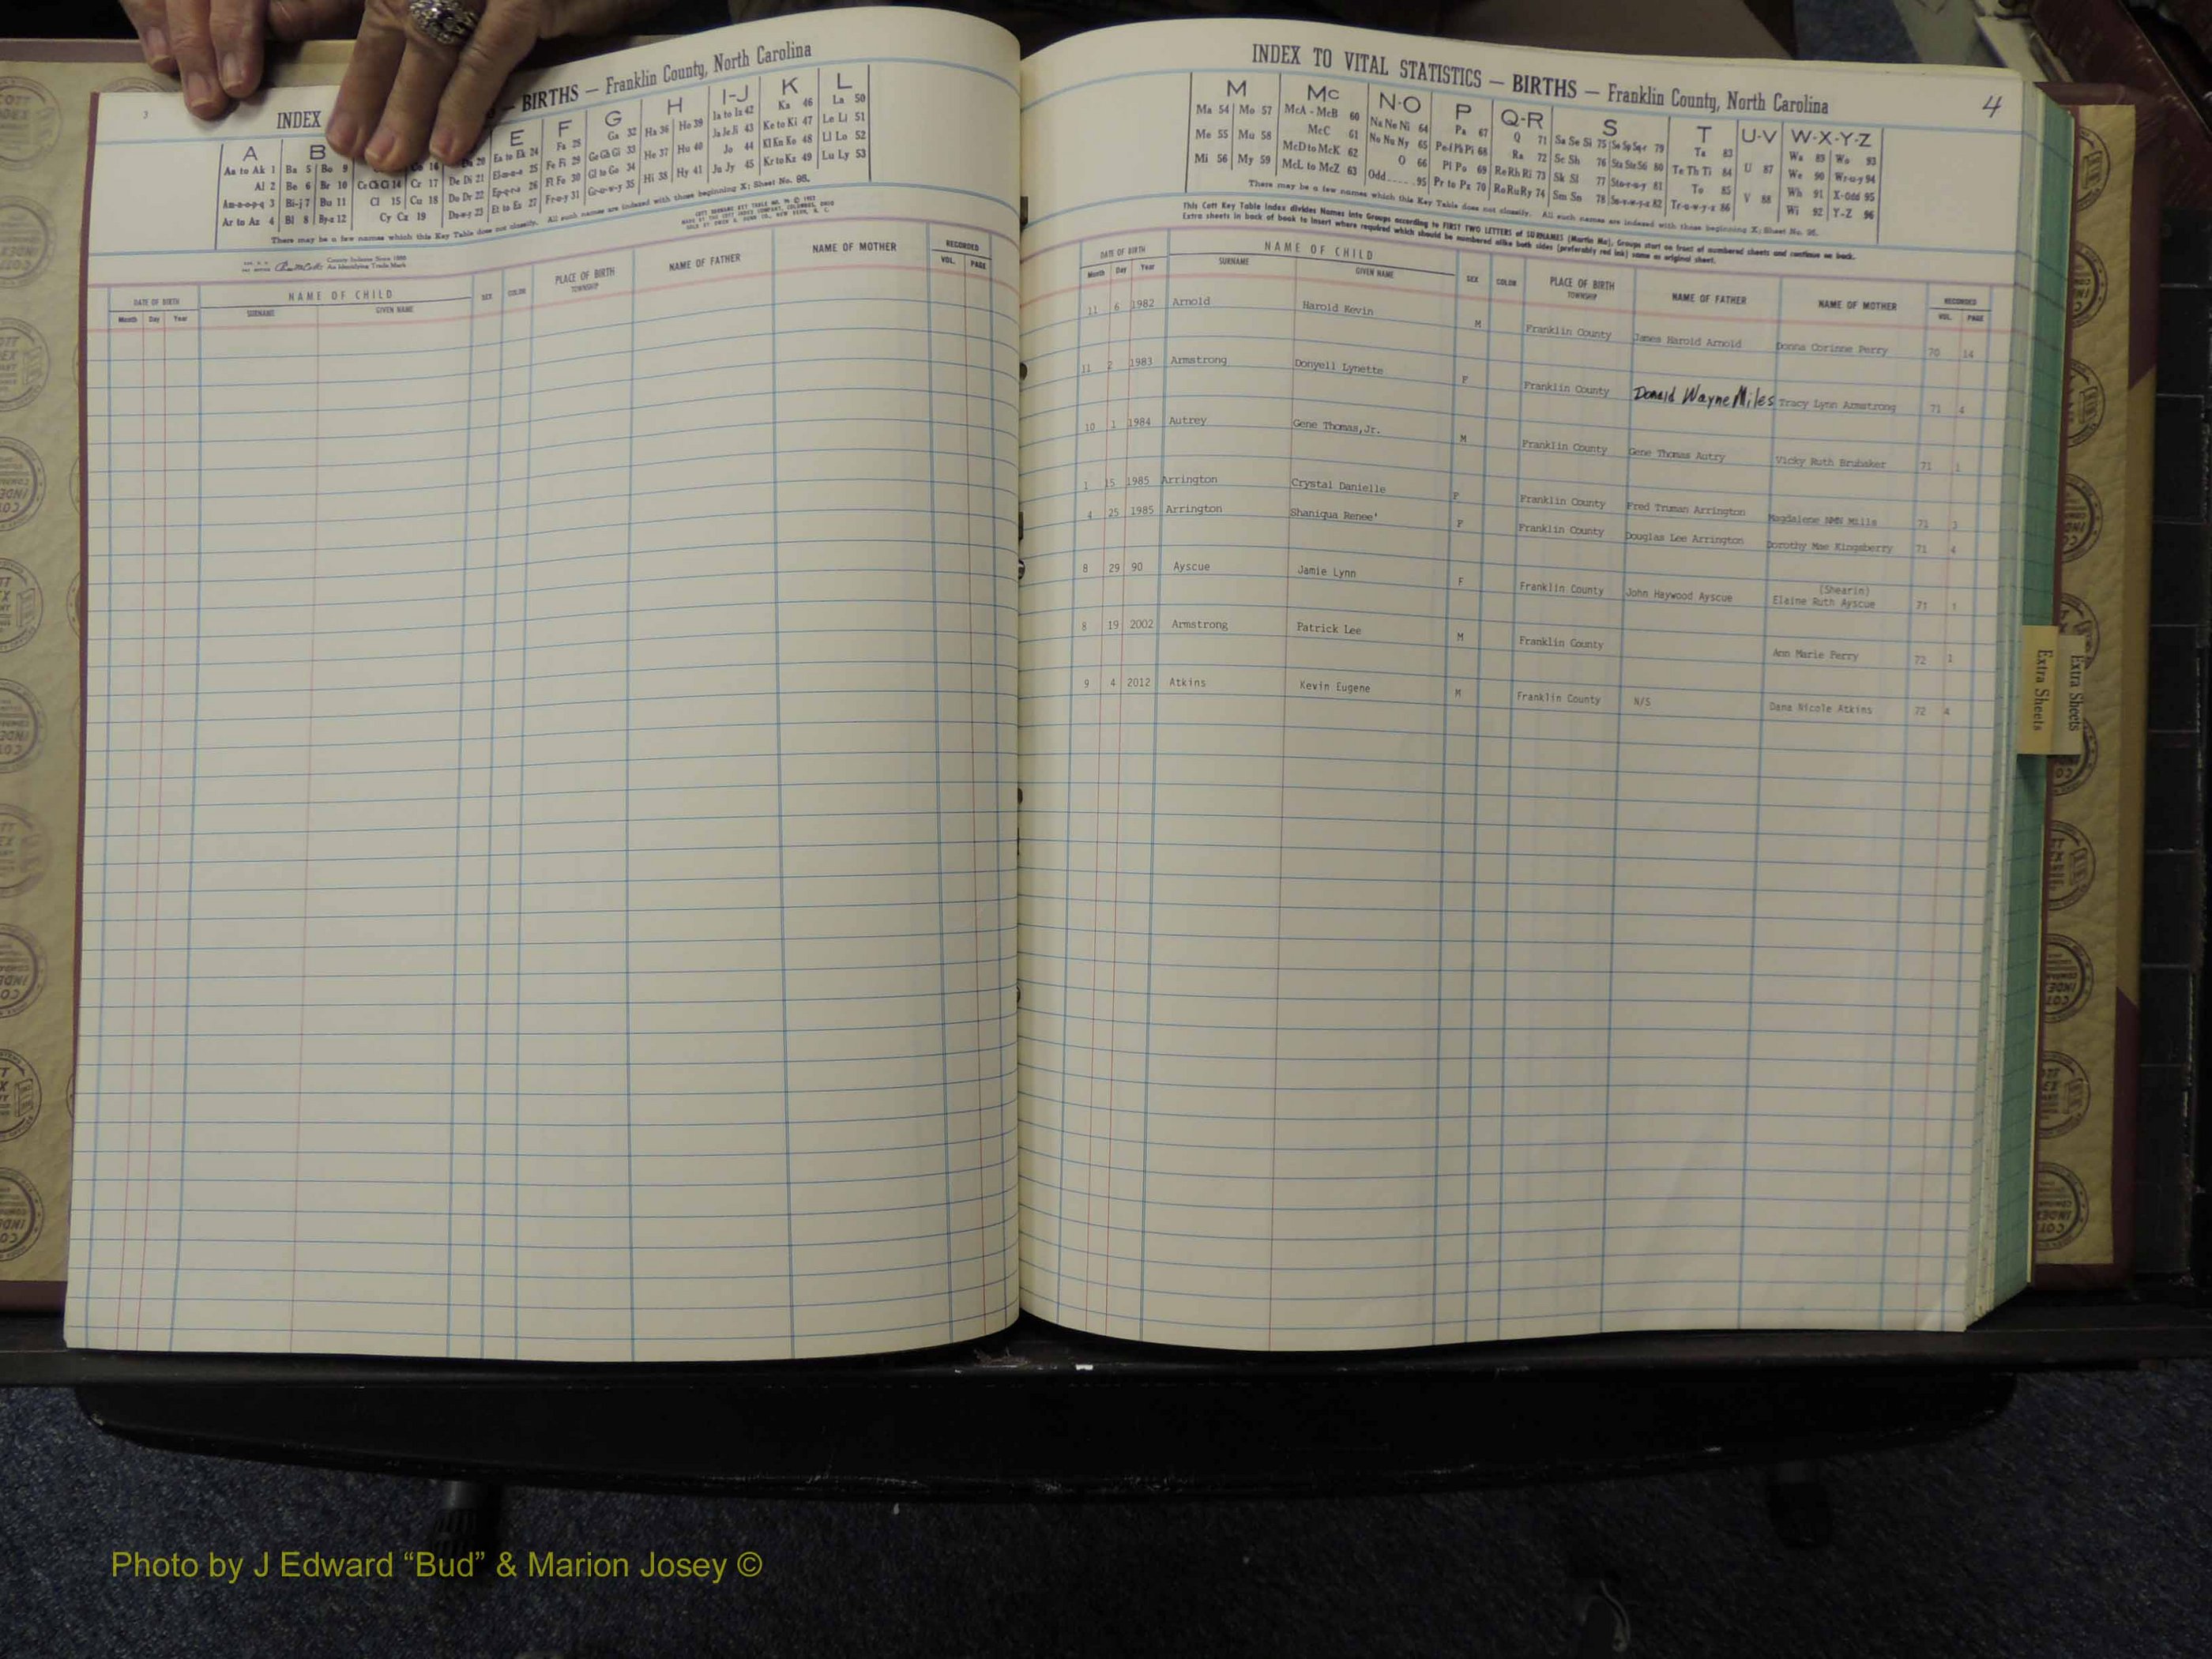 3
INDEX — BIRTHS — Franklin County, North Carolina
A B E F G H I-J K L
Aa to Ak 1 Ba 5 Bo 9 Ea to Ek 24 Fa 25 Ga 32 Ha 36 Ho 39 Ia to Iz 42 Ka 46 La 50
Al 2 Be 6 Br 10 Cr 17 De Di 21 Fe Fi 29 Ge Gh Gi 33 He 37 Hu 40 Ja Je Ji 43 Ke to Ki 47 Le Li 51
Am-n-o-p-q 3 Bi-j 7 Bu 11 Cl 15 Cu 18 Do Dr 22 Fl Fo 30 Gl to Go 34 Hi 38 Hy 41 Jo 44 Kl Kn Ko 48 Ll Lo 52
Ar to Az 4 Bl 8 By-z 12 Cy Cz 19 Et to Ez 27 Fr-u-y 31 Gr-u-w-y 35 Ju Jy 45 Kr to Kz 49 Lu Ly 53
There may be a few names which this Key Table does not classify. All such names are indexed with those beginning X; Sheet No. 95.
DATE OF BIRTH NAME OF CHILD SEX COLOR PLACE OF BIRTH NAME OF FATHER NAME OF MOTHER RECORDED
Month Day Year SURNAME GIVEN NAME TOWNSHIP VOL. PAGE
INDEX TO VITAL STATISTICS — BIRTHS — Franklin County, North Carolina
4
M Mc N-O P Q-R S T U-V W-X-Y-Z
Ma 54 Mo 57 McA - McB 60 Na Ne Ni 64 Pa 67 Q 71 Sa Se Si 75 Ta 83 U 87 Wa 89 Wo 93
Me 55 Mu 58 McC 61 No Nu Ny 65 Pe-f Ph Pi 68 Ra 72 Sc Sh 76 Te Th Ti 84 We 90 Wr-u-y 94
Mi 56 My 59 McD to McK 62 O 66 Pl Po 69 Re Rh Ri 73 Sk Sl 77 To 85 V 88 Wh 91 X-Odd 95
McL to McZ 63 Odd 95 Pr to Pz 70 Ro Ru Ry 74 Sm Sn 78 Tr-u-w-y-z 86 Wi 92 Y-Z 96
There may be a few names which this Key Table does not classify. All such names are indexed with those beginning X; Sheet No. 95.
This Cott Key Table Index divides Names into Groups according to FIRST TWO LETTERS of SURNAMES (Martin Ma); Groups start on front of numbered sheets and continue on back.
Extra sheets in back of book to insert where required which should be numbered alike both sides (preferably red ink) same as original sheet.
DATE OF BIRTH NAME OF CHILD SEX COLOR PLACE OF BIRTH NAME OF FATHER NAME OF MOTHER RECORDED
Month Day Year SURNAME GIVEN NAME TOWNSHIP VOL. PAGE
11 6 1982 Arnold Harold Kevin M Franklin County James Harold Arnold Donna Corinne Perry 70 14
11 2 1983 Armstrong Donyell Lynette F Franklin County Donald Wayne Miles Tracy Lynn Armstrong 71 4
10 1 1984 Autrey Gene Thomas,Jr. M Franklin County Gene Thomas Autry Vicky Ruth Brubaker 71 1
1 15 1985 Arrington Crystal Danielle F Franklin County Fred Truman Arrington Magdalene NMN Mills 71 3
4 25 1985 Arrington Shaniqua Renee' F Franklin County Douglas Lee Arrington Dorothy Mae Kingsberry 71 4
8 29 90 Ayscue Jamie Lynn F Franklin County John Haywood Ayscue (Shearin) Elaine Ruth Ayscue 71 1
8 19 2002 Armstrong Patrick Lee M Franklin County Ann Marie Perry 72 1
9 4 2012 Atkins Kevin Eugene M Franklin County N/S Dana Nicole Atkins 72 4
Extra Sheets
Extra Sheets
Photo by J Edward “Bud” & Marion Josey ©